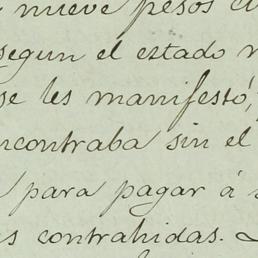 nueve pesos
segun el estado
se les manifestó,
ncontraba sin el
para pagar á
s contrahidas.